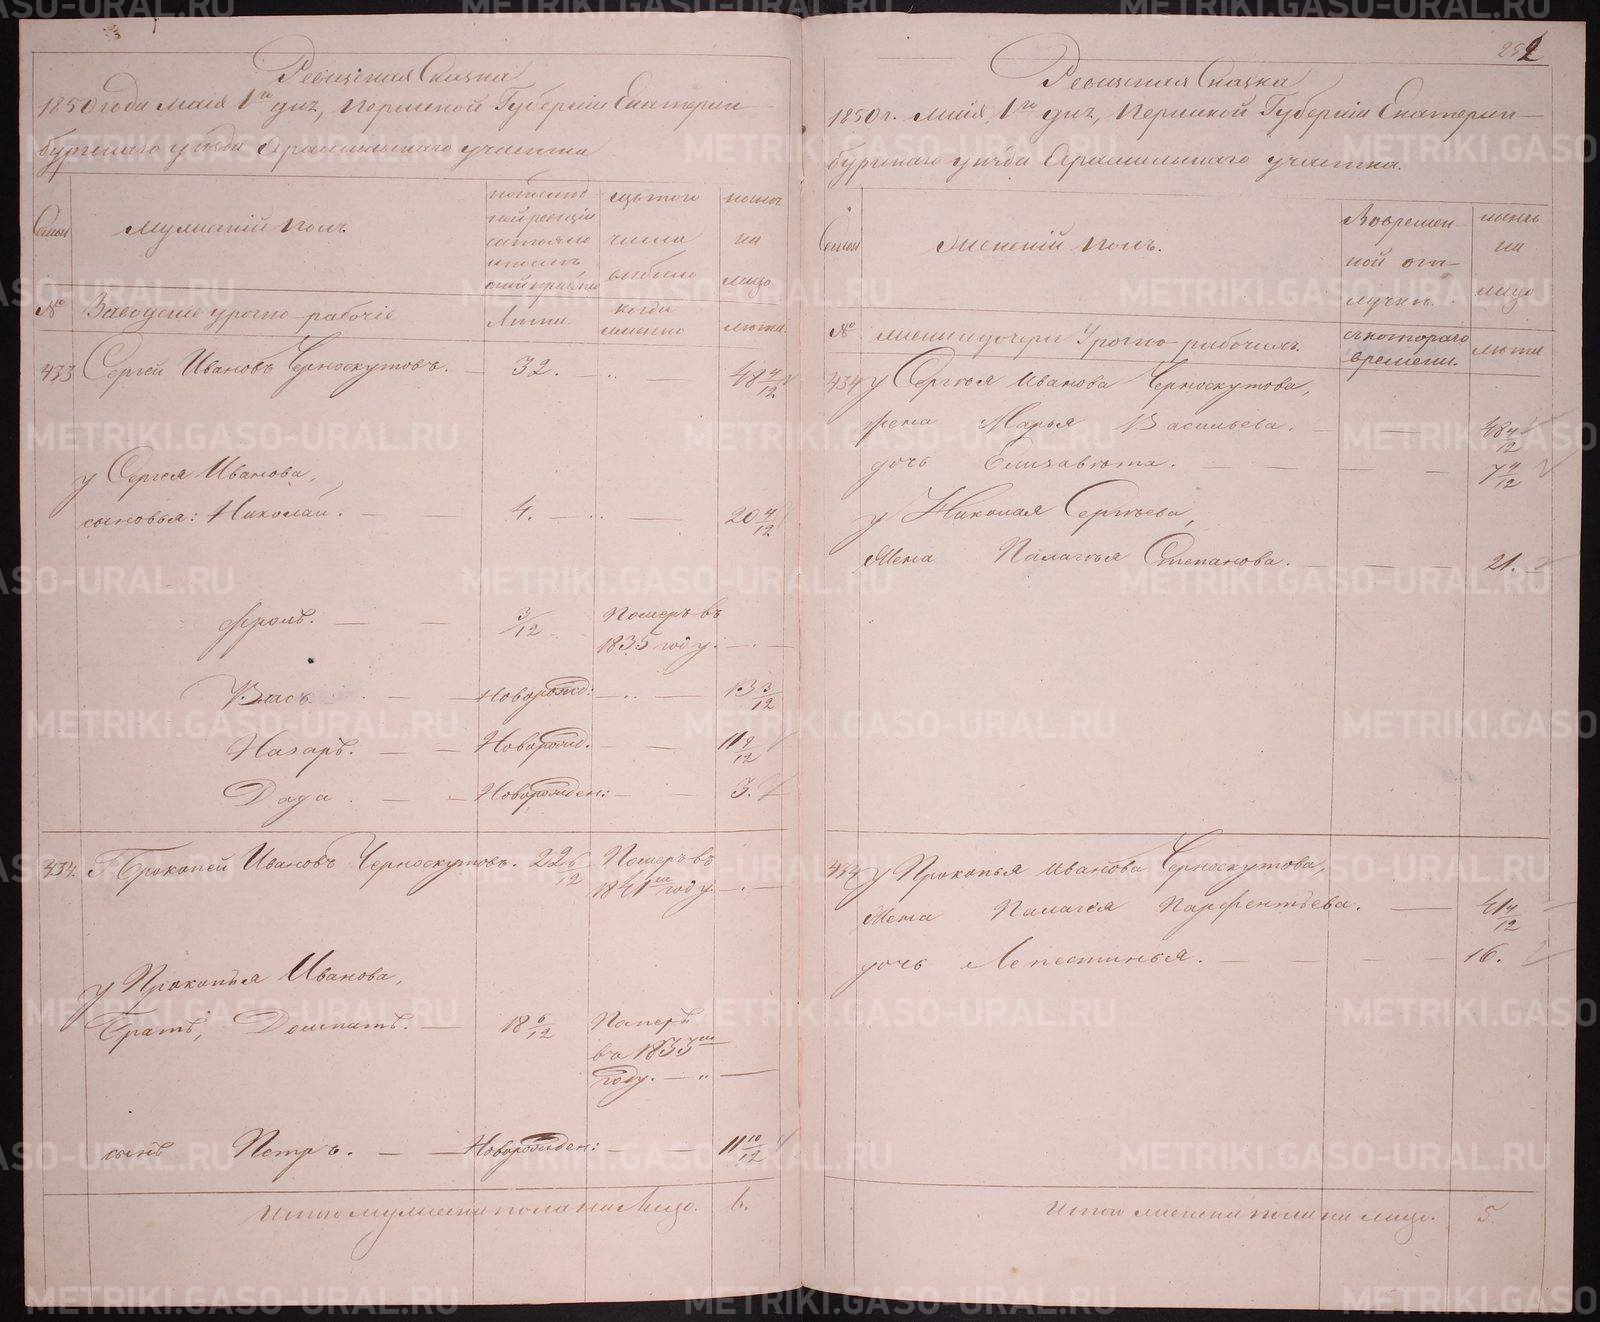 Ревизская Сказка
1850 года маія 1го дня, Пермской Губерніи Екатерин
бургскаго уѣзда Арамильскаго участка
Семьи
мужескій полъ.
по послѣд
ней ревизіи
состояло
изъ того
числа
выбыло
нынѣ
на
лицо
№
Заводскіе урочно-рабочіе
Лѣта
когда
именно
лѣта.
433 Сергей Ивановъ Черноскутовъ. — 32. — 48 4/12
у Сергея Иванова,
сыновья: Николай. — — 4. — 20 4/12
Фролъ. — — 3/12 Померъ въ
1835 году. — —
Власъ. — — Новорожд: — — 13 3/12
Назаръ. — — Новорожд. — — 11 2/12
Дада. — — Новорожден: — — 3.
434. Прокопей Ивановъ Черноскутовъ. 22 6/12 Померъ въ
1841м году. — —
у Прокопья Иванова,
братъ, — 18 6/12 Померъ
въ 1833м
году. — —
сынъ Петръ. — — Новорожден: — — 11 10/12
Итого мужеска пола на Лицо. 6.
252
Ревизская Сказка
1850 г. маія 1го дня, Пермской Губерніи Екатерин—
бургскаго уѣзда Арамильскаго участка.
Семьи
Женскій полъ.
Во времен—
ной от—
лучкѣ.
нынѣ
на
лицо
№
жены и дочери Урочно-рабочихъ.
съ котораго
времени.
лѣта
434 у Сергѣя Иванова Черноскутова,
жена Марья Васильева. — — 48 4/12
дочь Елизавѣта. — — — — 7 4/12
у Николая Сергѣева,
Жена Палагѣя Степанова. — — — 21.
434 у Прокопья Иванова Черноскутова,
Жена Палагея Парфентьева. — 41 4/12
дочь Лепестинья. — — — — 16.
Итого женска пола на лицо. 5.
METRIKI.GASO-URAL.RU